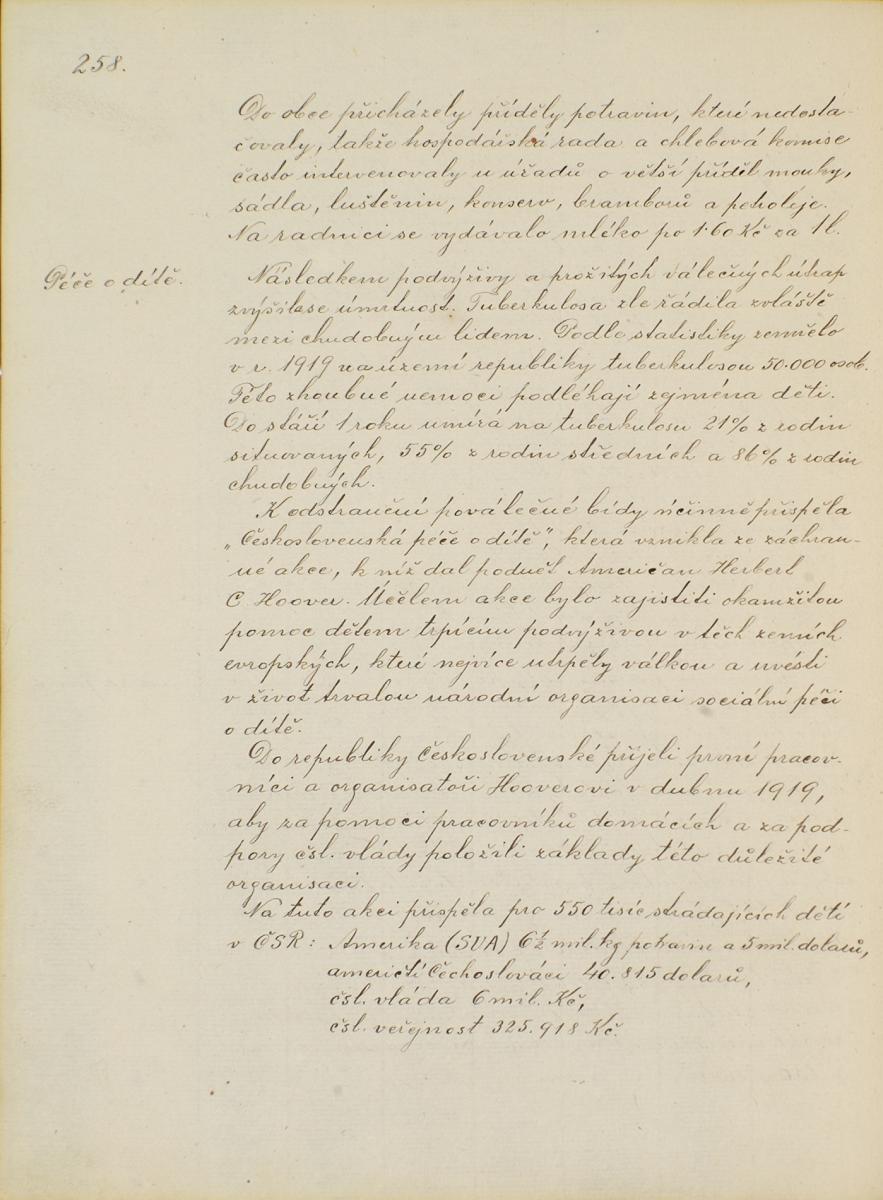 258.
Do obce přicházely příděly potravin, které nedosta-
čovaly, takže hospodářská rada a chlebová komise
často intervenovaly u úřadů o větší příděl mouky,
sádla, luštěnin, konserv, bramborů a petroleje.
Na radnici se vydávalo mléko po 1·60 Kč za 1 l.
Péče o dítě.
Následkem podvýživy a prožitých válečných útrap
zvýšila se úmrtnost. Tuberkulosa zle řádila zvláště
mezi chudobným lidem. Podle statistiky zemřelo
v r. 1919 na území republiky tuberkulosou 50.000 osob.
Této zhoubné nemoci podléhají zejména děti.
Do stáří 1 roku umírá na tuberkulosu 21% z rodin
situovaných, 55% z rodin středních a 86% z rodin
chudobných.
K odstranění poválečné bídy účinně přispěla
„Československá péče o dítě", která vznikla ze záchran-
né akce, k níž dal podnět Američan Herbert
C Hoover. Účelem akce bylo zajistiti okamžitou
pomoc dětem trpícím podvýživou v těch zemích
evropských, které nejvíce utrpěly válkou a uvésti
v život trvalou národní organisaci sociální péči
o dítě.
Do republiky Československé přijeli první pracov-
níci a organisatoři Hooverovi v dubnu 1919,
aby za pomoci pracovníků domácích a za pod-
pory čsl. vlády položili základy této důležité
organisaci.
Na tuto akci přispěla pro 550 tisíc strádajících dětí
v ČSR: Amerika (SVA) mil. kg potravin a 5 mil. dolarů,
američtí Čechoslováci 40.815 dolarů,
čsl. vláda 6 mil. Kč,
čsl. veřejnost 325.918 Kč.